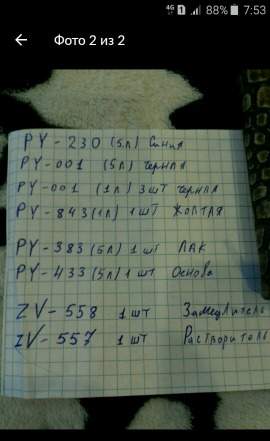 4G 1 88% 7:53
Фото 2 из 2
PY-230 (5л) Синия
PY-001 (5л) чернпя
PY-001 (1л) 3шт чернпя
PY-843 (1л) 1 шт жолтпя
PY-383 (5л) 1 шт ЛАК
PY-433 (5л) 1 шт Основа
ZV-558 1 шт Замедлитель
ZV-557 1 шт Растворитель